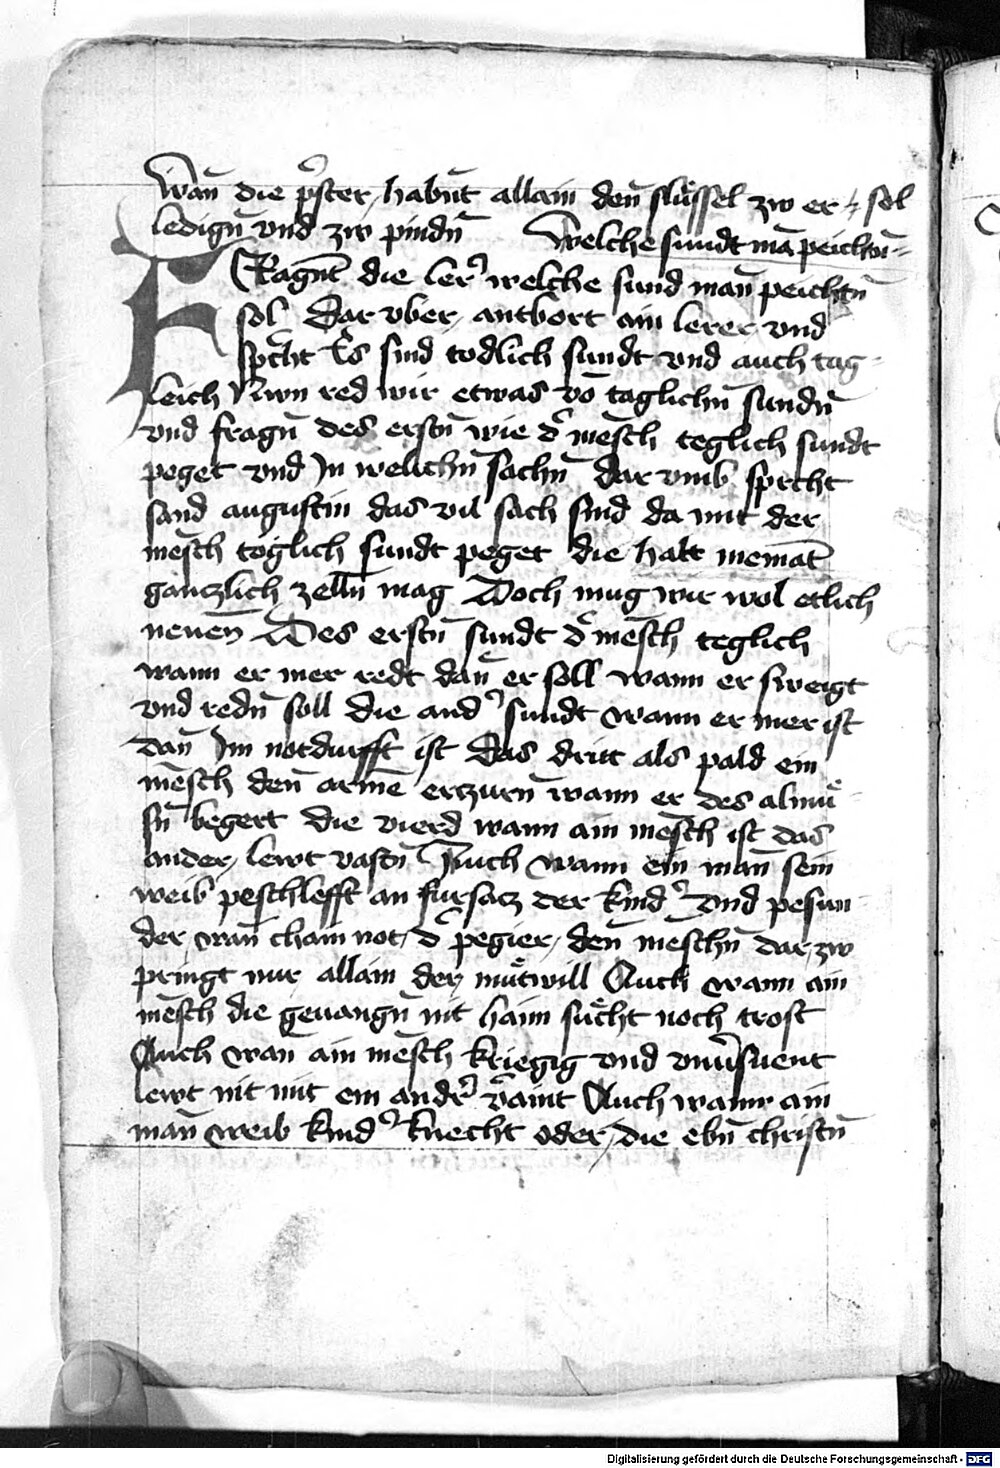 Wañ die pʳster habñt allain deñ slüssel zw er sol
ledigñ vnd zw pindñ Welche sundt mā peichtñ
FRagñt die lerʾ welche sund mañ peichtñ
sol Dar vber antbort ain lerer vnd
spʳcht Es sind todlich sundt vnd auch tag-
leich Nwn red wir etwas vō taglichñ sundñ
vnd fragñ des erstñ wie dʾ mēsch teglich sundt
peget vnd Jn welichñ sachñ dar vmb spricht
sand augustin das vil sach sind da mit der
mēsch toglich sundt peget die halt niemāt
gantzlich zellñ mag Doch mug wir wol etlich
nenen Des erstñ sundt dʾ mēsch teglich
wann er mer redt dañ er soll wann er sweigt
vnd redñ soll die andʾ sundt wann er mer ist
dañ Jm notdurfft ist Das dritt als pald ein
mēsch deñ armē erczurñ wann er des almü-
sñ begert Die vierd wann ain mēsch ist das
ander lewt vastñ Auch wann ein mañ sein
weib peschlefft an fursacz der kindʾ Vnd pesun-
der wañ chain not dʾ pegier deñ meschñ dar zw
pringt nur allain der mütwill Auch wann ain
mēsch die geuangñ nit haim sücht noch trost
Auch wañ ain mēsch kriegig vnd vnuʾsuent
lewt nit mit ein andrʾ vʾaint Auch wann ain
mañ weib kindʾ knecht oder die ebñ christñ
Digitalisierung gefördert durch die Deutsche Forschungsgemeinschaft - DFG